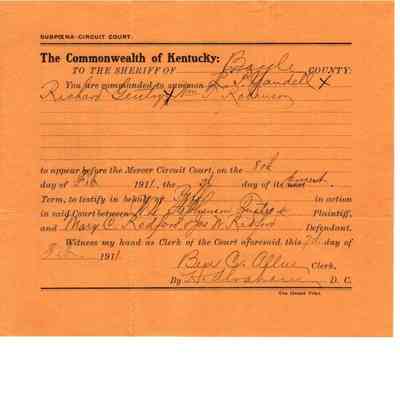 SUBPŒNA-CIRCUIT COURT.
The Commonwealth of Kentucky:
TO THE SHERIFF OF Boyle COUNTY:
You are commanded to summon L. S. Yandell x
Richard Gentry x Wm T. Robinson
to appear before the Mercer Circuit Court, on the 8th
day of Feb 1911, the day of its
Term, to testify in behalf of Plff in action
in said Court between Plaintiff,
and Mary C. Redford Defendant.
Witness my hand as Clerk of the Court aforesaid, this 7d day of
Feb 1911
Ben C. Allin Clerk,
By D. C.